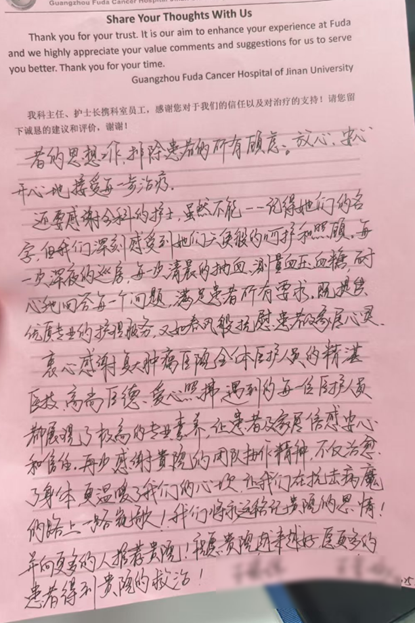 Guangzhou Fuda Cancer Hospital
Share Your Thoughts With Us
Thank you for your trust. It is our aim to enhance your experience at Fuda
and we highly appreciate your value comments and suggestions for us to serve
you better. Thank you for your time.
Guangzhou Fuda Cancer Hospital of Jinan University
我科主任、护士长携科室员工，感谢您对于我们的信任以及对治疗的支持！请您留
下诚恳的建议和评价，谢谢！
者的思想工作，排除患者的所有顾虑。放心，安心
开心地接受每一步治疗。
还要感谢全科的护士，虽然不能一一记得她们的名
字，但我们深刻感受到她们天使般的呵护和照顾。每
一次深夜的巡房，每一次清晨的抽血、测量血压、血糖，耐
心地回答每一个问题，满足患者所有要求，既提供
优质专业的护理服务，又如春风般抚慰患者及家属心灵。
衷心感谢复大肿瘤医院全体医护人员的精湛
医技，高尚医德，爱心照拂，遇到的每一位医护人员
都展现了极高的专业素养，让患者及家属倍感安心
和信任。再次感谢贵院的团队协作精神，不仅治愈
了身体，更温暖了我们的心灵，让我们在抗击病魔
的路上一路欢歌！我们将永远铭记贵院的恩情！
并向更多的人推荐贵院！祝愿贵院越来越好，医更多的
患者得到贵院的救治！